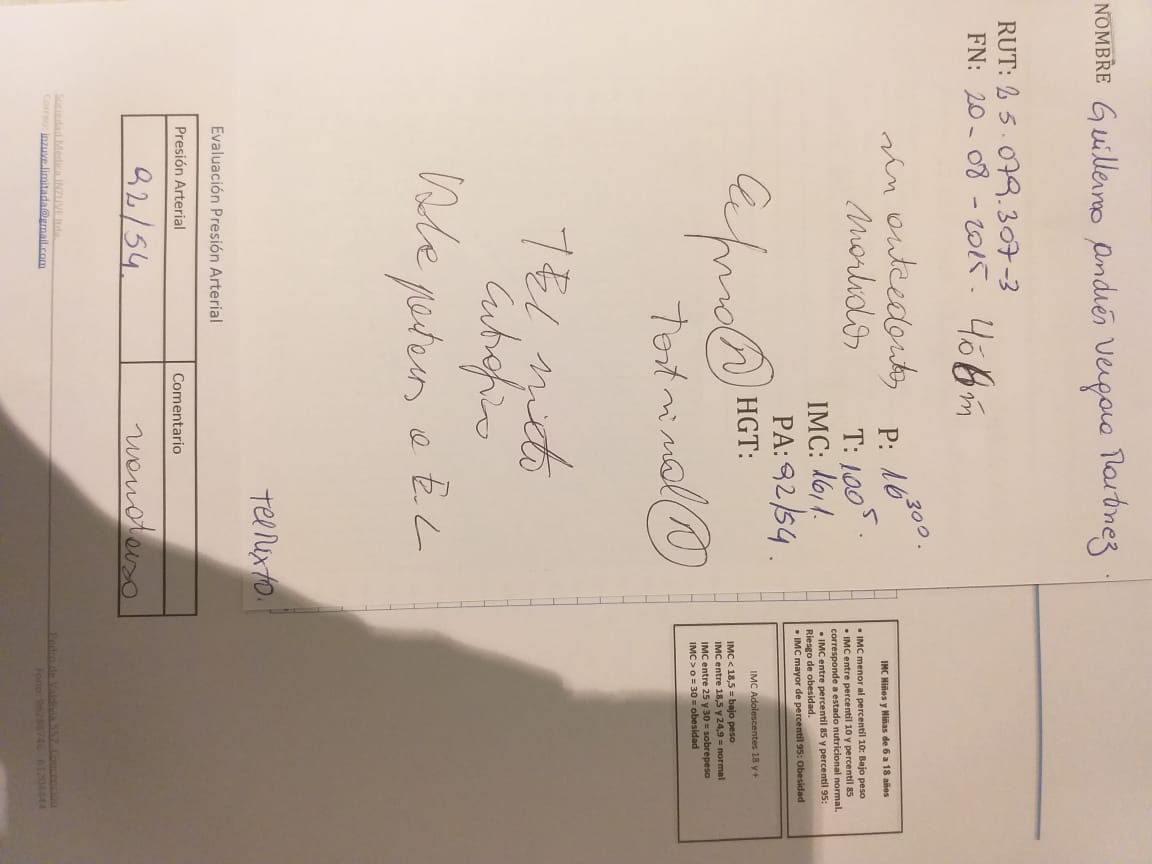 NOMBRE Guillermo Andrés Vergara Martinez.
RUT: 25.079.307-3
FN: 20-08-2015. 4a 6m
sin antecedentes
morbidos
P: 16 300.
T: 100 5.
IMC: 16,1.
PA: 92/54.
HGT:
(N)
(N)
TEL mixto
Eutrofico
E.L
Tel Mixto.
IMC Niños y Niñas de 6 a 18 años
• IMC menor al percentil 10: Bajo peso
• IMC entre percentil 10 y percentil 85
corresponde a estado nutricional normal.
• IMC entre percentil 85 y percentil 95:
Riesgo de obesidad.
• IMC mayor de percentil 95: Obesidad
IMC Adolescentes 18 y +
IMC < 18,5 = bajo peso
IMC entre 18,5 y 24,9 = normal
IMC entre 25 y 30 = sobrepeso
IMC > o = 30 = obesidad
Evaluación Presión Arterial
Presión Arterial
Comentario
92/54.
normotenso
Sociedad Médica INZUVE ltda.
Correo: inzuve.limitada@gmail.com
Pedro de Valdivia 557, Concepción